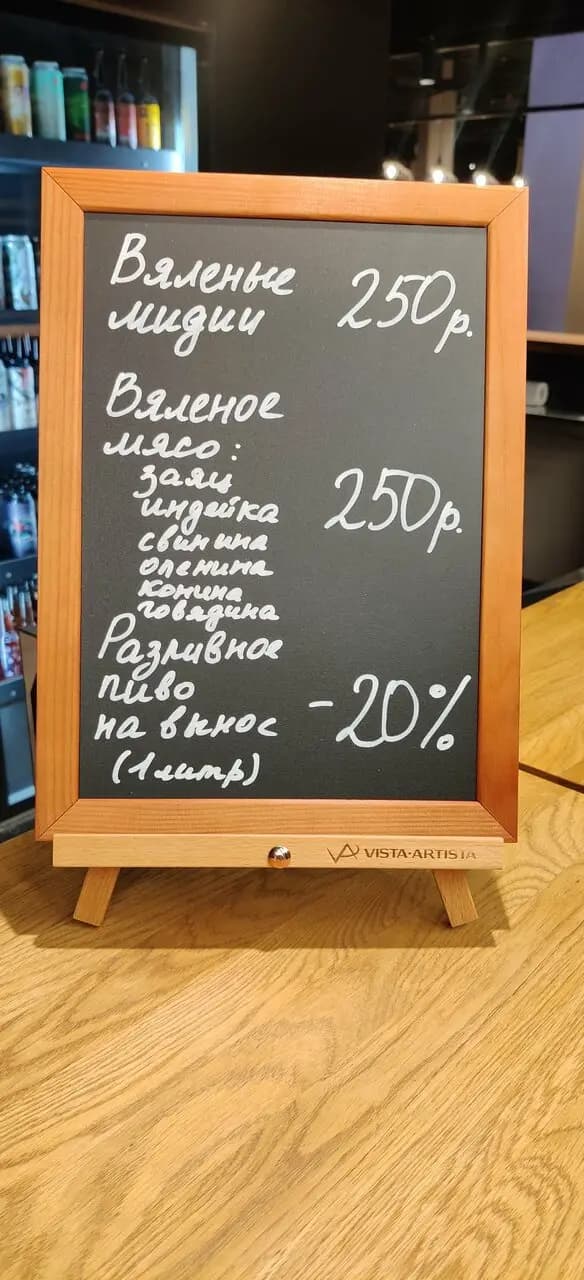 Вяленые 250р.
мидии
Вяленое
мясо:
заяц
индейка 250р.
свинина
оленина
конина
говядина
Разливное
пиво -20%
на вынос
(1 литр)
VISTA-ARTISTA